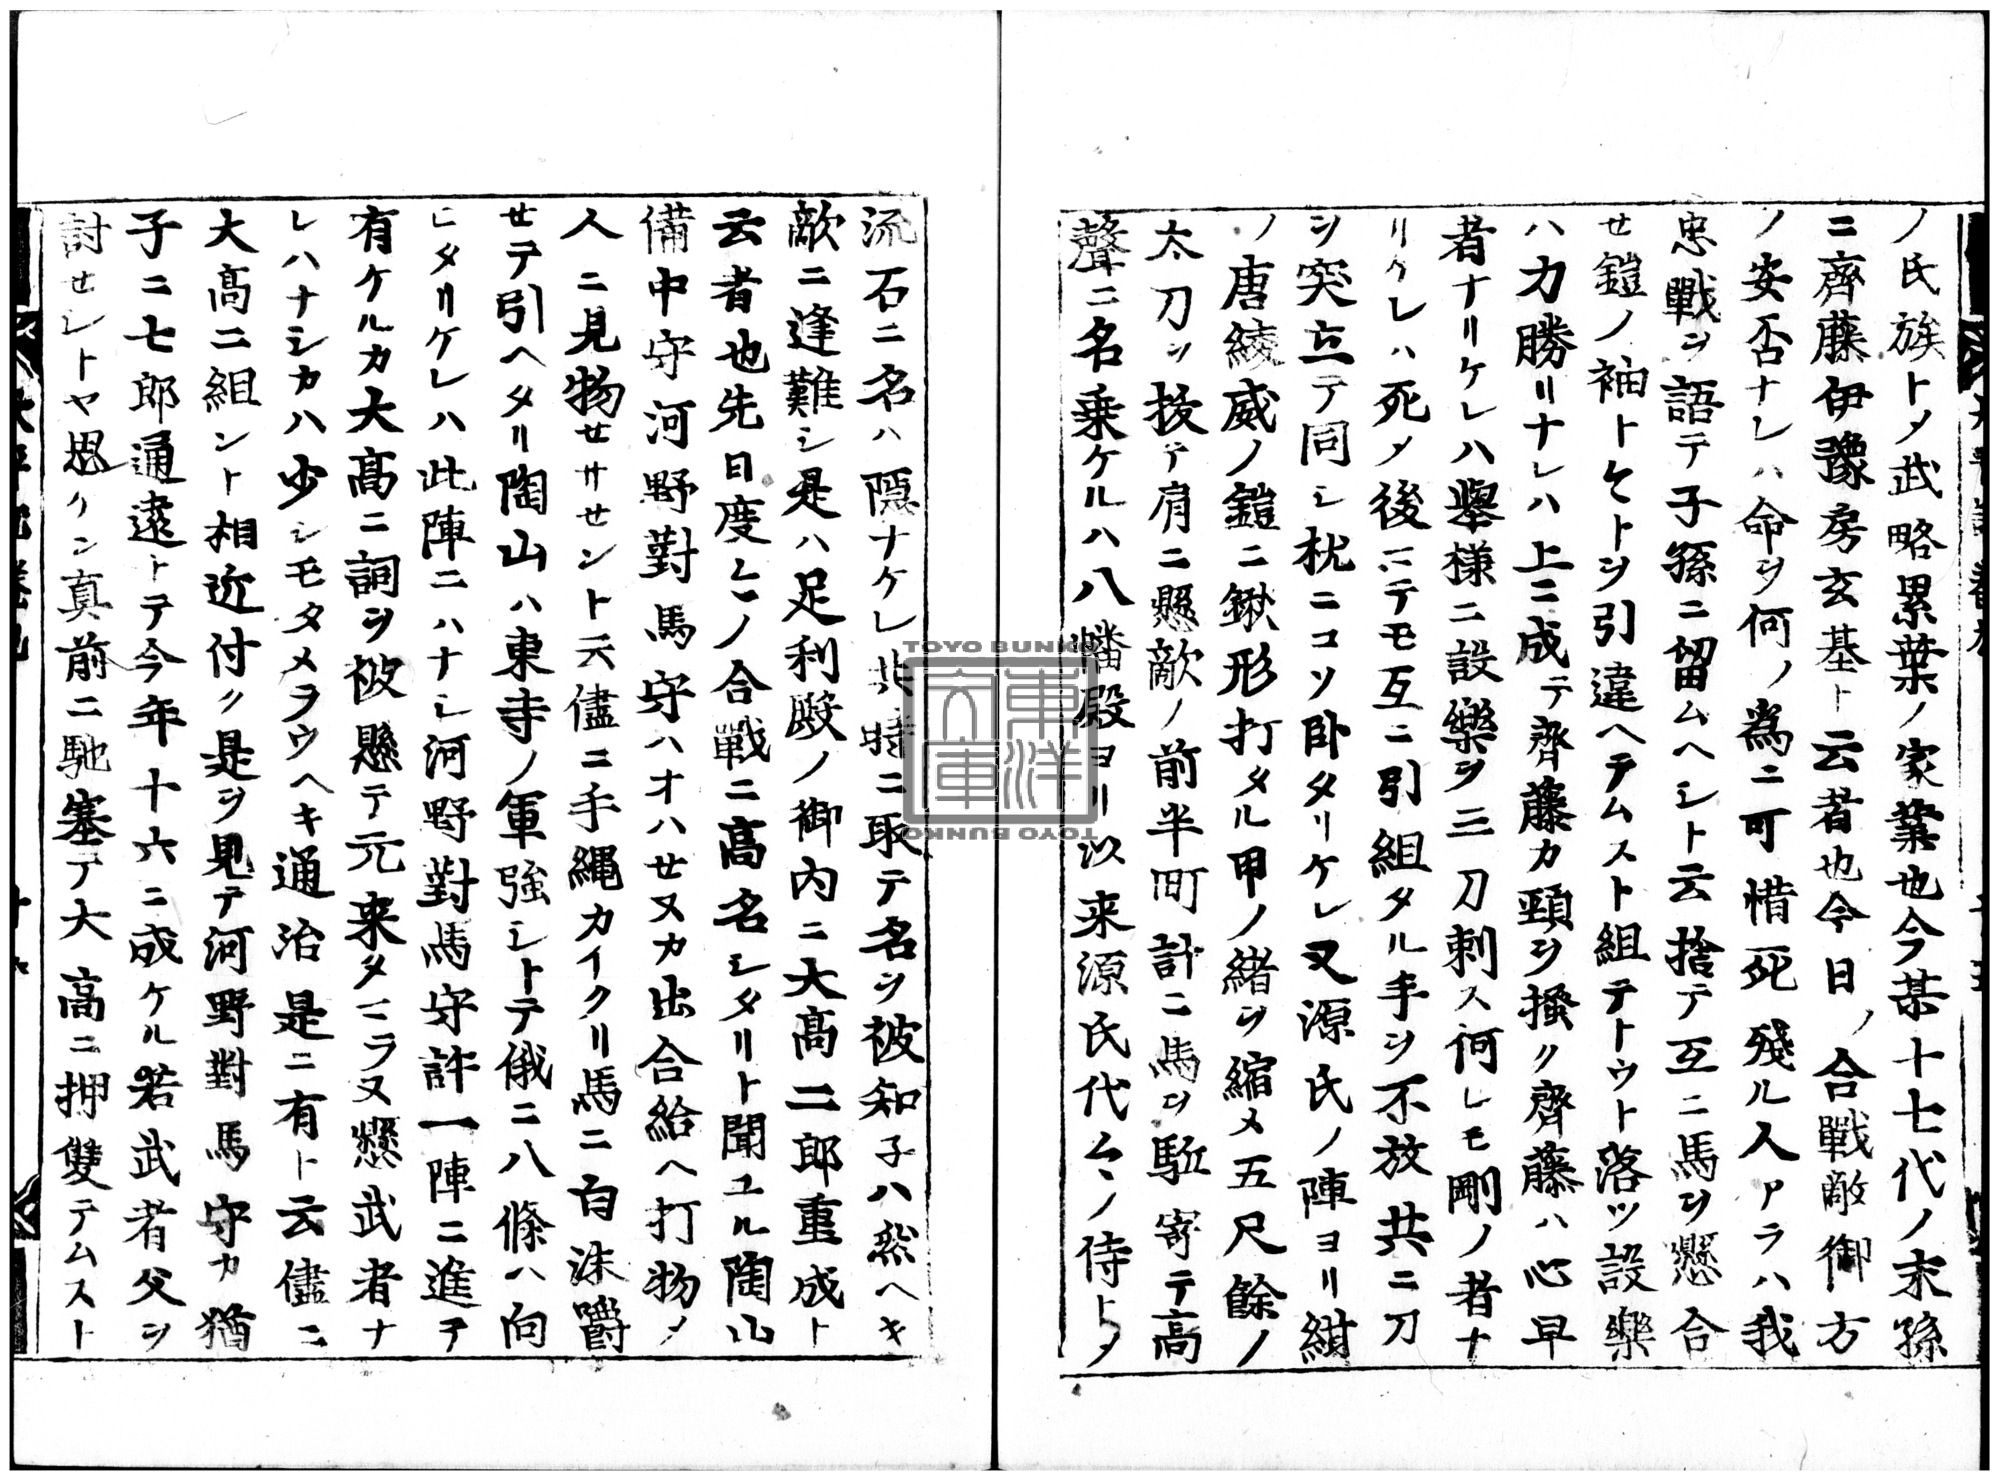 ノ氏族トメ武略累葉ノ家業也今某十七代ノ末孫
ニ齊藤伊豫房玄基ト云者也今日ノ合戰敵御方
ノ安否ナレハ命ヲ何ノ爲ニ可惜死殘ル人アラハ我
忠戰ヲ語テ子孫ニ留ムヘシト云捨テ互ニ馬ヲ懸合
セ鎧ノ袖トヒトヲ引違ヘテムスト組テトウト落ツ設樂
ハ力勝リナレハ上ニ成テ齊藤カ頸ヲ搔ク齊藤ハ心早
者ナリケレハ擧様ニ設樂ヲ三刀刺ス何レモ剛ノ者ナ
リケレハ死メ後ニテモ互ニ引組タル手ヲ不放共ニ刀
ヲ突立テ同シ枕ニコソ卧タリケレ又源氏ノ陣ヨリ紺
ノ唐綾威ノ鎧ニ鍬形打タル甲ノ緒ヲ縮メ五尺餘ノ
太刀ヲ拔テ肩ニ懸敵ノ前半町計ニ馬ヲ駈寄テ高
聲ニ名乗ケルハ八幡殿ヨリ以来源氏代々ノ侍トメ
流石ニ名ハ隱ナケレ共時ニ取テ名ヲ被知子ハ然ヘキ
敵ニ逢難シ是ハ足利殿ノ御内ニ大高二郎重成ト
云者也先日度々ノ合戰ニ高名シタリト聞ユル陶山
備中守河野對馬守ハオハセヌカ出合給ヘ打物ノ
人ニ見物せサせント云儘ニ手縄カイクリ馬ニ白沫嚼
せテ引ヘタリ陶山ハ東寺ノ軍強シトテ俄ニ八條ハ向
ヒタリケレハ此陣ニハナシ河野對馬守許一陣ニ進テ
有ケルカ大高ニ詞ヲ被懸テ元来タマラヌ懸武者ナ
レハナシカハ少シモタメラウヘキ通治是ニ有ト云儘ニ
大高ニ組ント相近付ク是ヲ見テ河野對馬守カ猶
子ニ七郎通遠トテ今年十六ニ成ケル若武者父ヲ
討せレトヤ思ケン真前ニ馳塞テ大高ニ押雙テムスト
TOYO BUNKO
東洋文庫
TOYO BUNKO